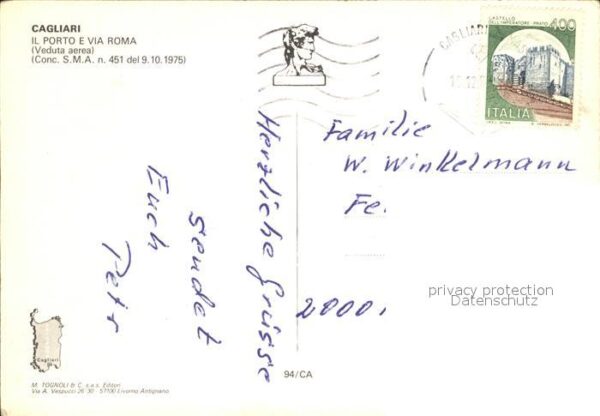 CAGLIARI
IL PORTO E VIA ROMA
(Veduta aerea)
(Conc. S.M.A. n. 451 del 9.10.1975)
CAGLIARI
CASTELLO
DELL'IMPERATORE - PRATO
400
ITALIA
Herzliche Grüsse
sendet
Euch
Peter
Familie
W. Winkelmann
Fe.
2000.
privacy protection
Datenschutz
Cagliari
94/CA
M. TOGNOLI & C. s.a.s. Editori
Via A. Vespucci 26-30 - 57100 Livorno Antignano